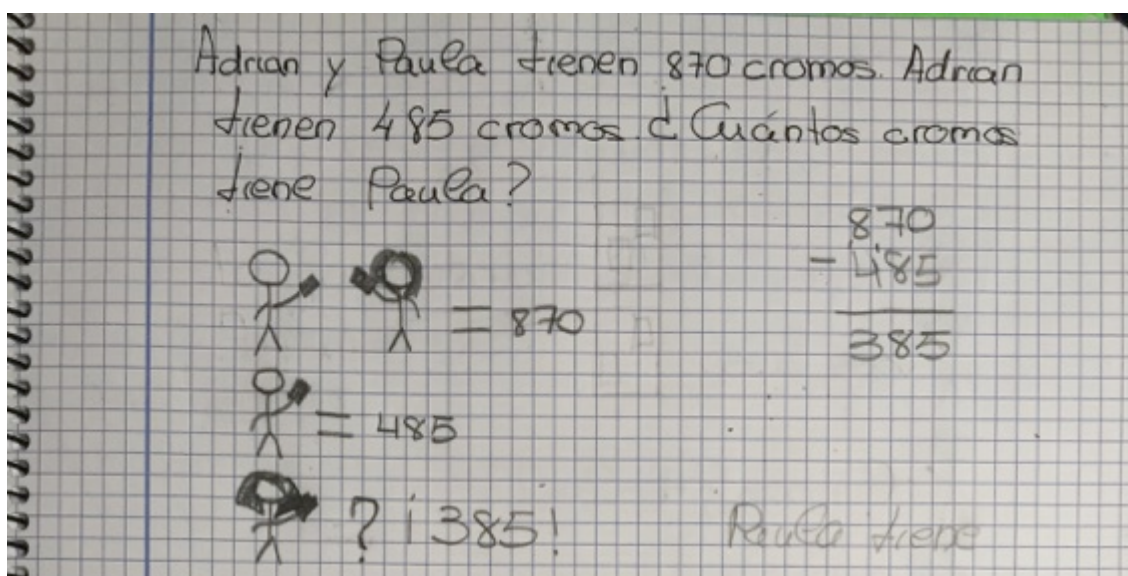 Adrian y Paula tienen 870 cromos. Adrian
tienen 485 cromos. ¿Cuántos cromos
tiene Paula?
870
- 485
385
= 870
= 485
? ¡385!
Paula tiene